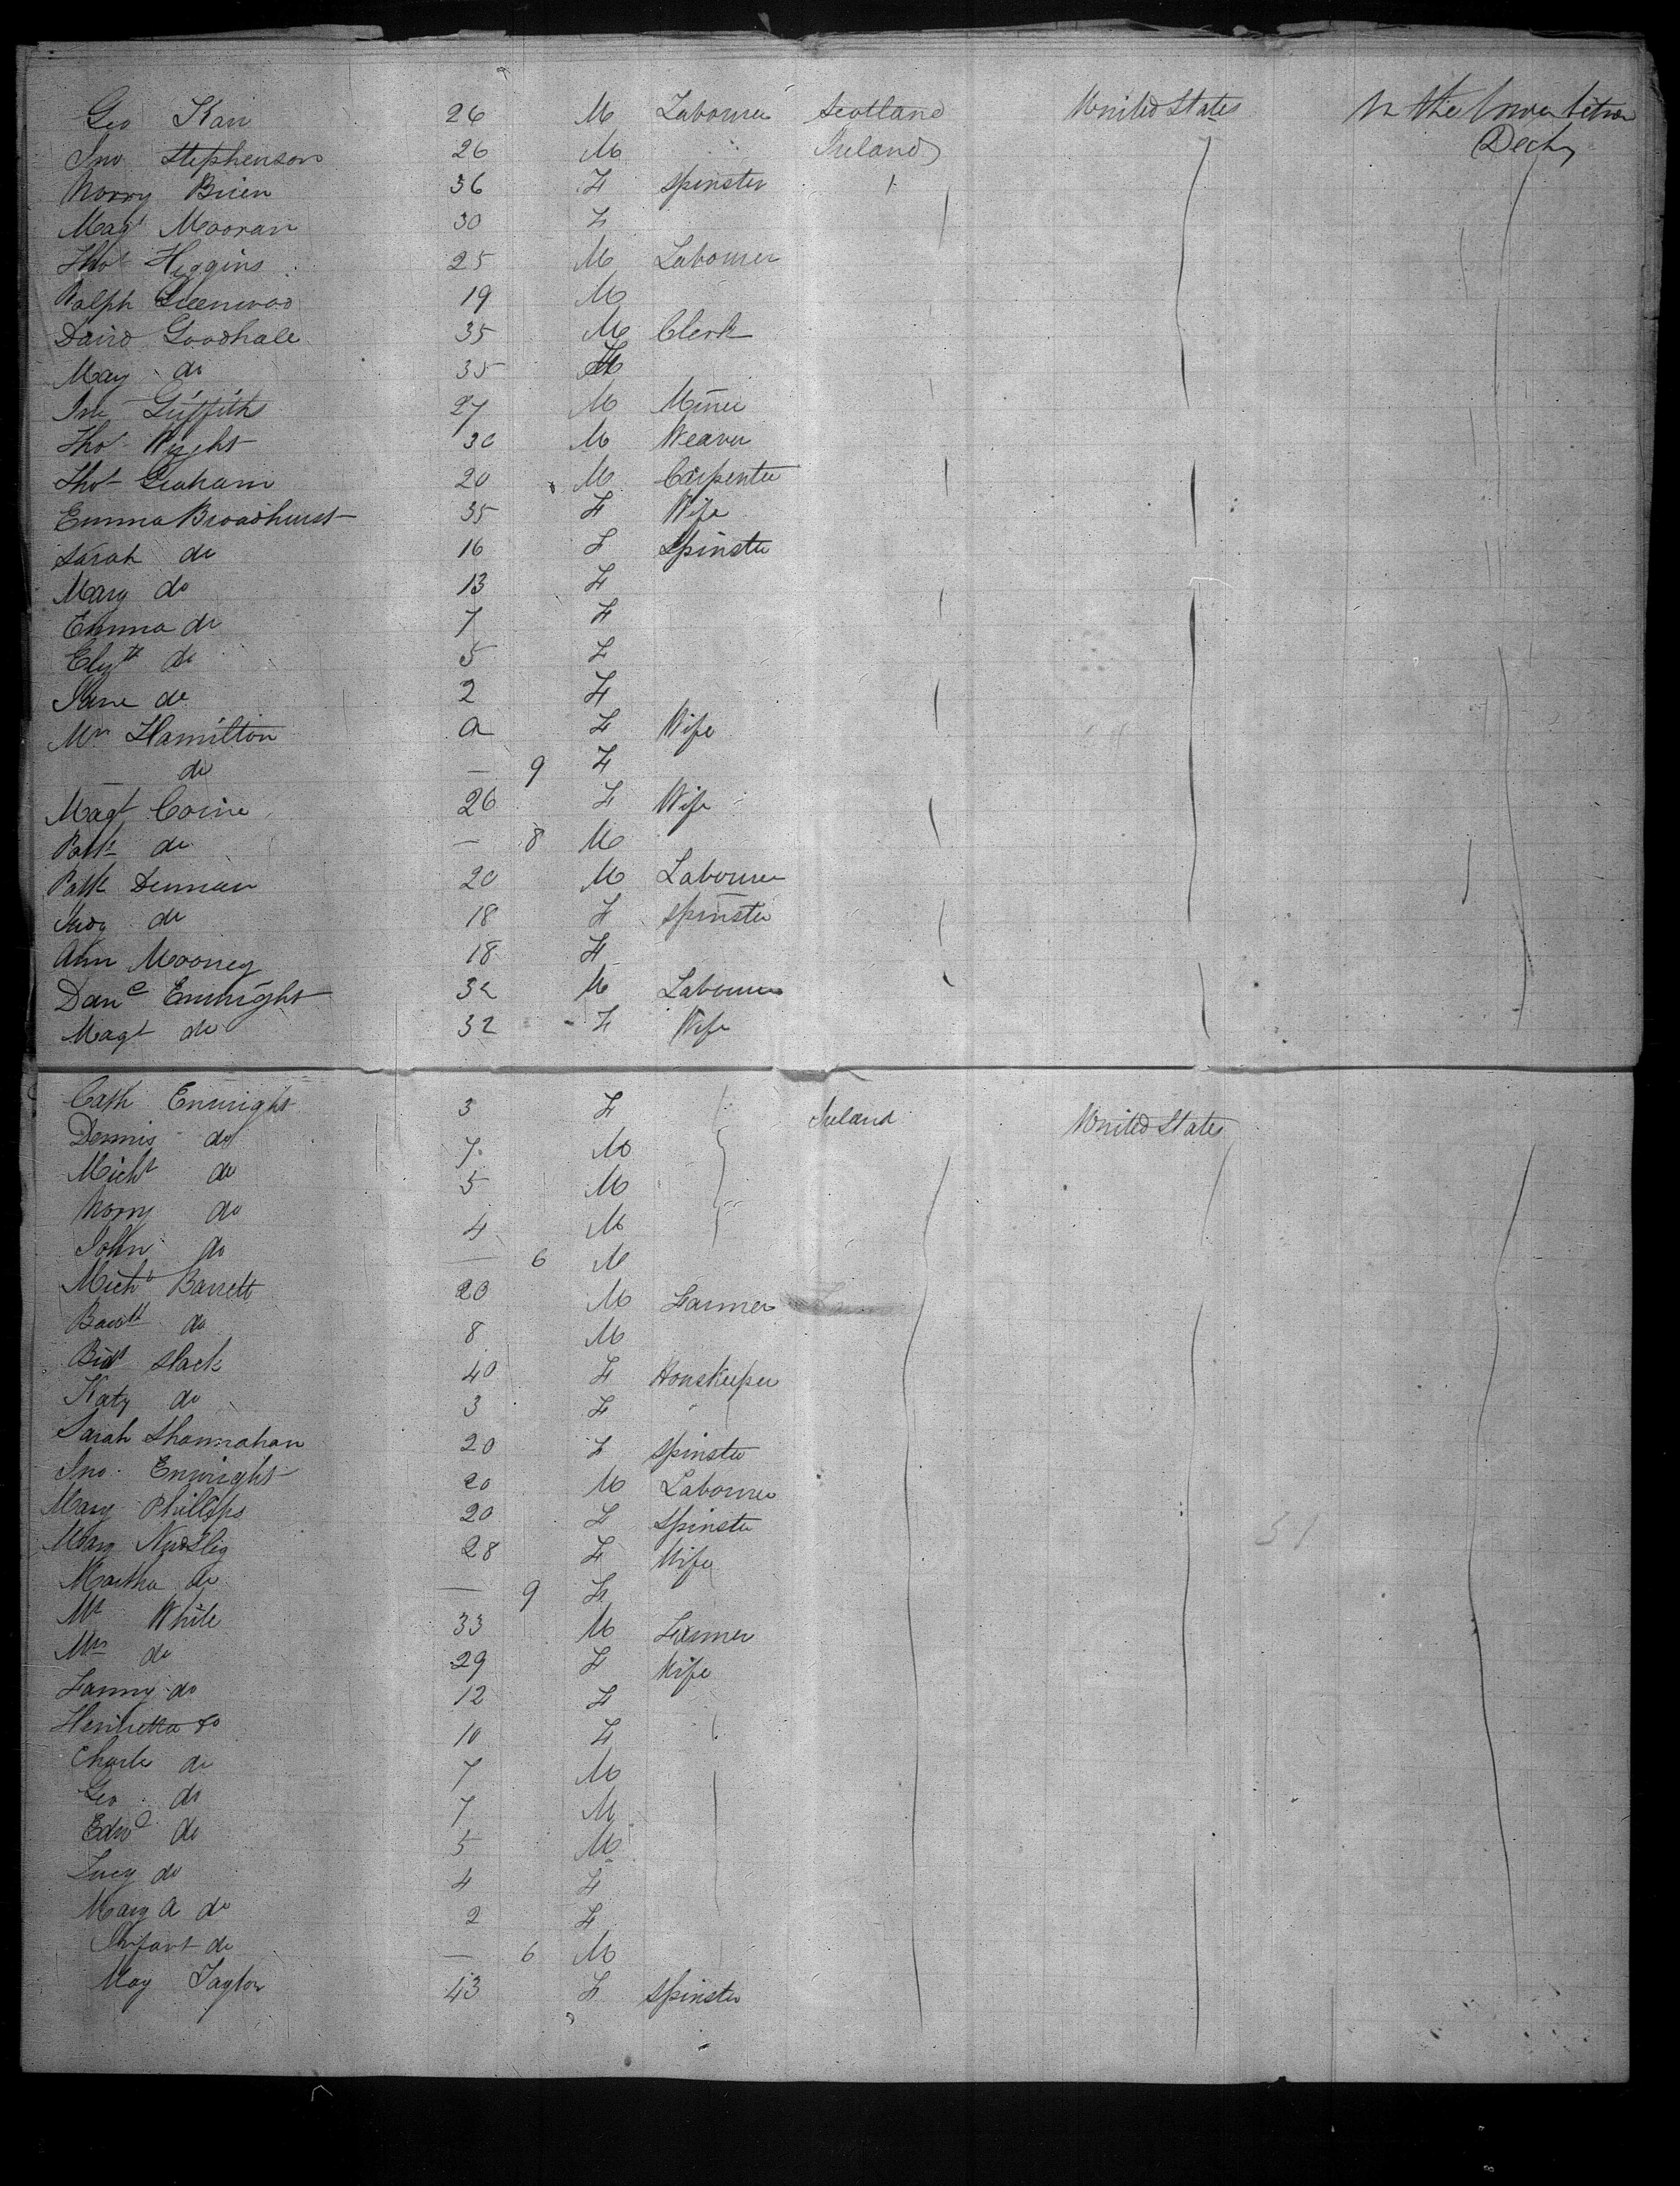 Geo Karr 26 M Labourer Scotland United States In the lower between
Jno Stephenson 26 M " Ireland Decks
Norry Brien 36 F Spinster
Magt Mooran 30 F
Thos Higgins 25 M Labourer
Ralph Greenwood 19 M
David Goodhale 35 M Clerk
Mary do 35 F
Jno Griffiths 27 M Miner
Thos Wright 30 M Weaver
Thos Graham 20 M Carpenter
Emma Broadhurst 35 F Wife
Sarah do 16 F Spinster
Mary do 13 F
Emma do 7 F
Elizth do 5 F
Jane do 2 F
Mrs Hamilton a F Wife
do — 9 F
Magt Corrie 26 F Wife
Patk do — 8 M
Patk Dennan 20 M Labourer
Judy do 18 F Spinster
Ann Mooney 18 F
Danl Enwright 32 M Labourer
Magt do 32 F Wife
Cath Enwright 3 F Ireland United States
Dennis do 7 M
Michl do 5 M
Norry do 4 M
John do — 6 M
Michl Barrett 20 M Farmer
Bartt do 8 M
Bidt Slack 40 F Houskeeper
Katy do 3 F
Sarah Shannahan 20 F Spinster
Jno Enwright 20 M Labourer
Mary Phillips 20 F Spinster
Mary 28 F Wife
Martha do — 9 F
Mr White 33 M Farmer
Mrs do 29 F Wife
Fanny do 12 F
Henrietta do 10 F
Charle do 7 M
Geo do 7 M
Edwd do 5 M
Lucy do 4 F
Mary A do 2 F
Infant do — 6 M
May Taylor 43 F Spinster